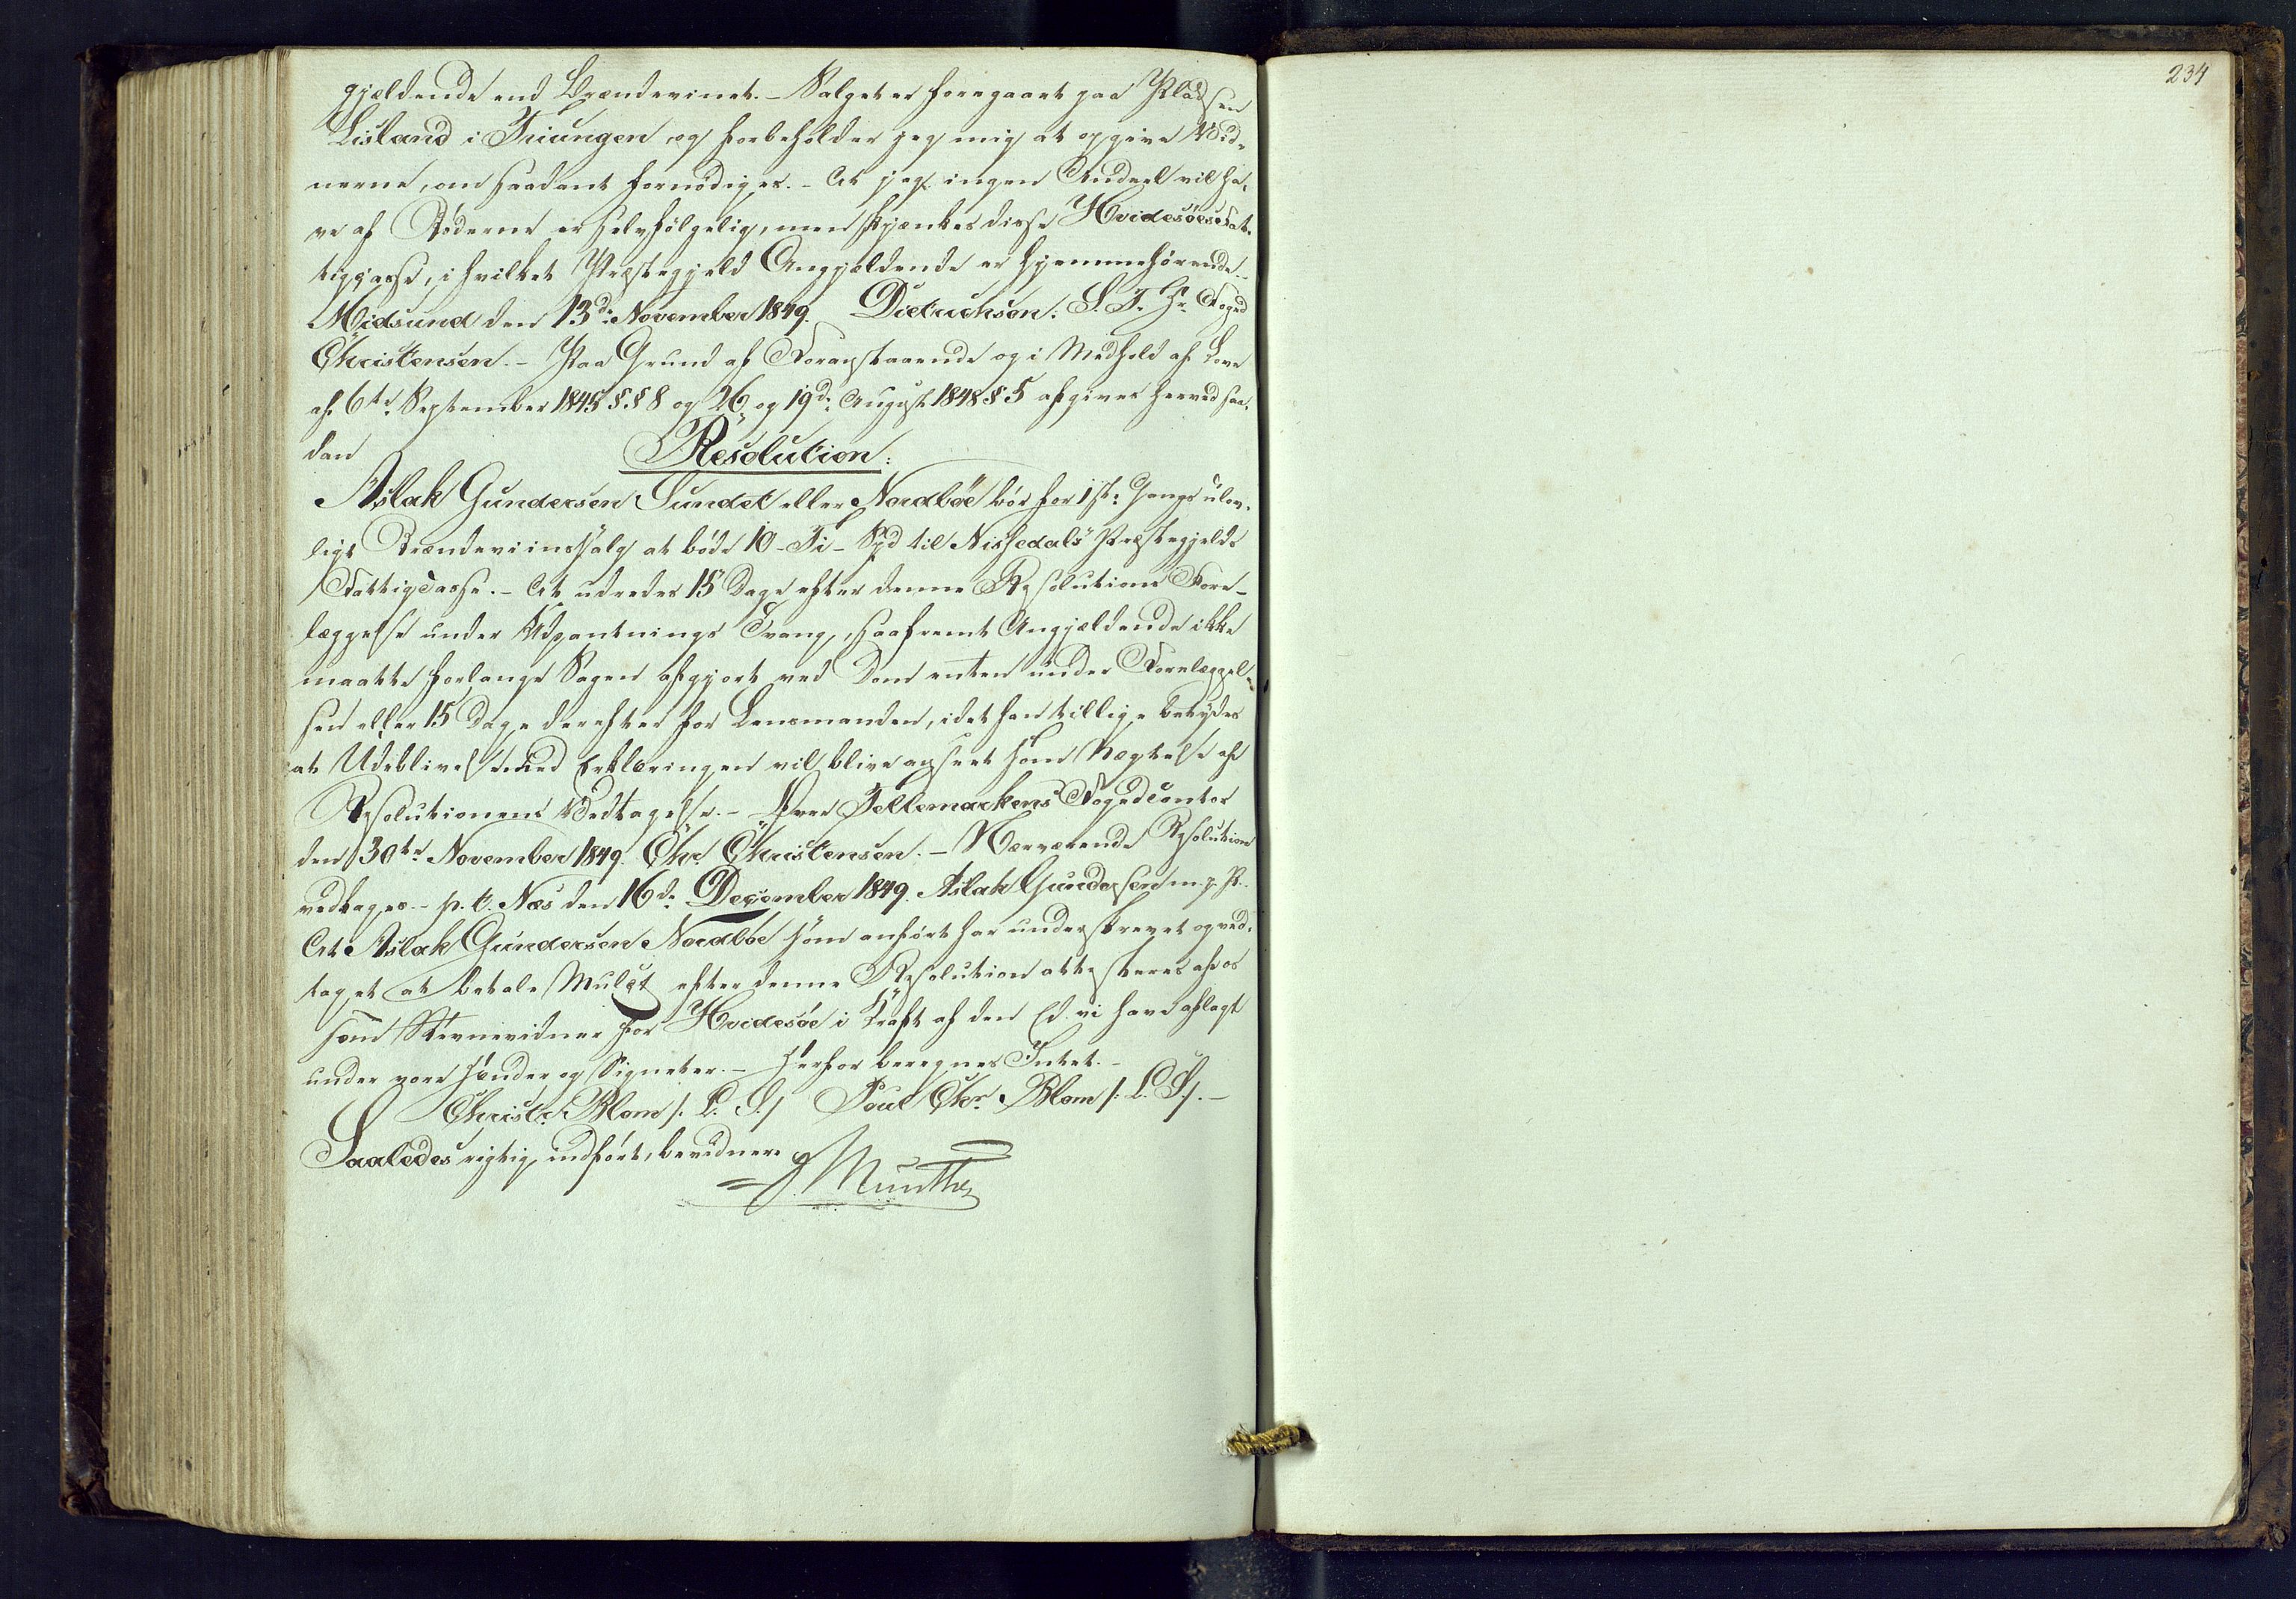 234
gjeldende end Brændevinet. – Salget er foregaaet paa Pladsen
Lisland i Triungen og forbeholder jeg mig at opgive Vid-
nerne, om saadant fornødiges. – At jeg ingen Andeel vil ha-
ve af Bøderne er selvfølgelig, men skjænkes disse Hvidesøes Fat-
tigcasse, i hvilket Præstegjeld Angjældende er hjemmehørende. –
Midsund den 13de November 1849. Dietrichson. S. T. Hr. Foged
Christensen. – Paa Grund af Foranstaaende og i Medhold af Love
af 6te September 1845 §§ 8 og 26 og 19de August 1848 § 5 afgives herved saa-
dan
Resolution:
Aslak Gundersen Sundet eller Nordbøe bør for 1ste Gangs ulov-
ligt Brændeviinssalg at bøde 10 – Ti – Spd til Nissedals Præstegjelds
Fattigcasse. – At udredes 15 Dage efter denne Resolutions Fore-
læggelse under Udpantnings Tvang, saafremt Angjældende ikke
maatte forlange Sagen afgjort ved Dom enten under Forelæggel-
sen eller 15 Dage derefter for Lensmanden, idet han tillige betydes
at Udeblivelse med Erklæringen vil blive anseet som Nægtelse af
Resolutionens Vedtagelse. – Øvre Tellemarkens Fogedcontor
den 30te November 1849. Chr. Christensen. – Nærværende Resolution
vedtages. – p. t. Næs den 16de December 1849. Aslak Gundersen m. p. P.
At Aslak Gundersen Nordbøe som anført har underskrevet og ved-
taget at betale Mulct efter denne Resolution attesteres af os
som Stevnevidner for Hvidesøe i Kraft af den Ed vi have aflagt
under vore Hænder og Signeter. – Herfor beregnes Intet. –
Christ. Blom /: L. S. / Poul Chr. Blom /: L. S. /. –
Saaledes rigtig indført, bevidner
J. Munthe